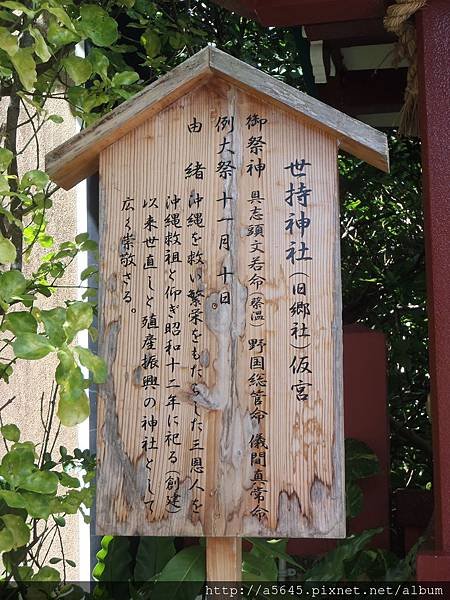 世持神社(旧郷社)仮宮
御祭神 具志頭文若命(蔡温)野国総管命 儀間真常命
例大祭 十一月十日
由緒 沖縄を救い繁栄をもたらした三恩人を
沖縄救祖と仰ぎ昭和十二年に祀る(創建)
以来世直しと殖産振興の神社として
広く崇敬さる。
http://a5645.pixnet.net/album